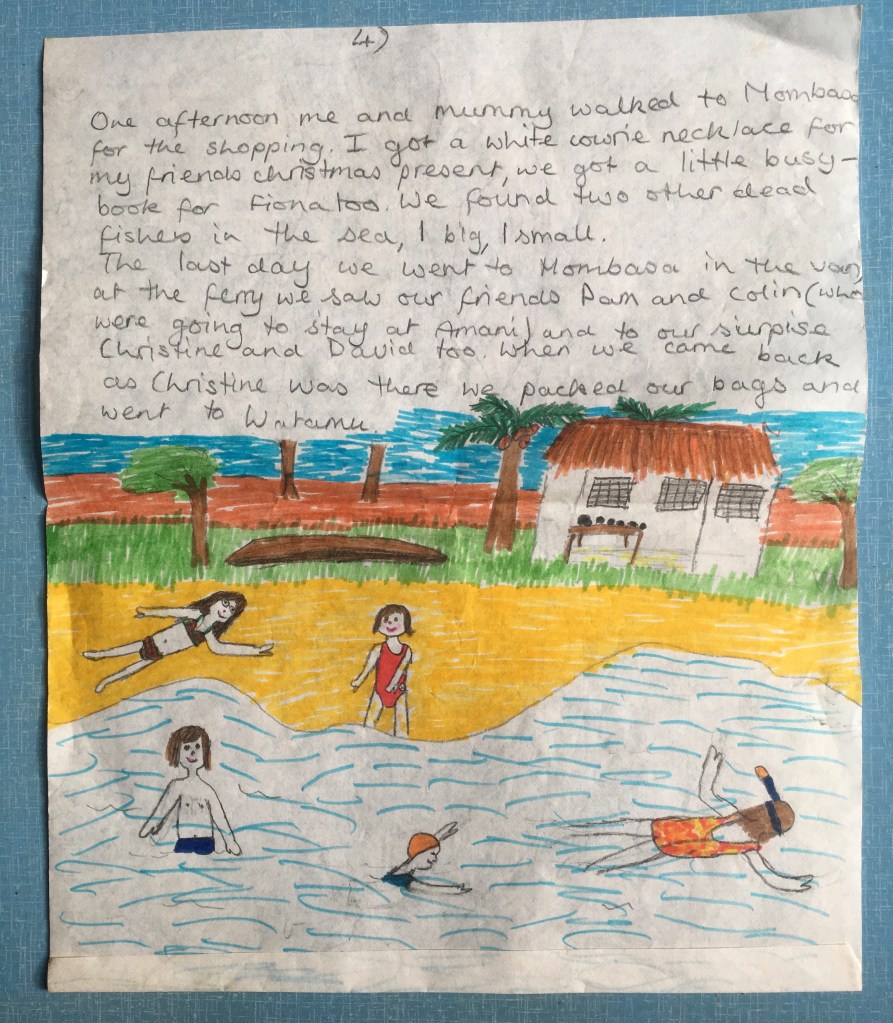 4)
One afternoon me and mummy walked to Mombasa
for the shopping. I got a white cowrie necklace for
my friends christmas present, we got a little busy-
book for Fiona too. We found two other dead
fishes in the sea, 1 big, 1 small.
The last day we went to Mombasa in the van,
at the ferry we saw our friends Pam and Colin (who
were going to stay at Amani) and to our surprise
Christine and David too. When we came back
as Christine was there we packed our bags and
went to Watamu.